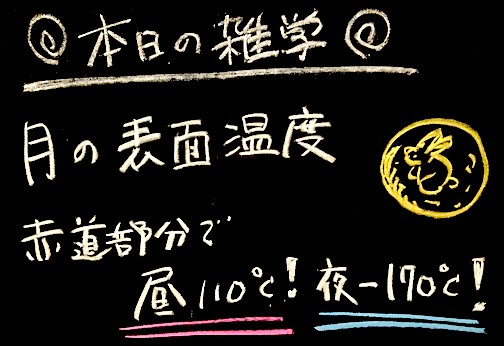 本日の雑学
月の表面温度
赤道部分で
昼110℃! 夜-170℃!